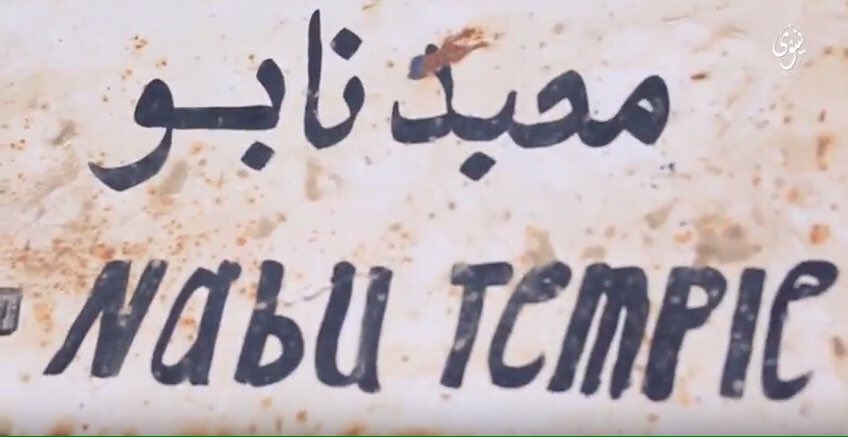 نينوى
معبد نابو
Nabu Temple